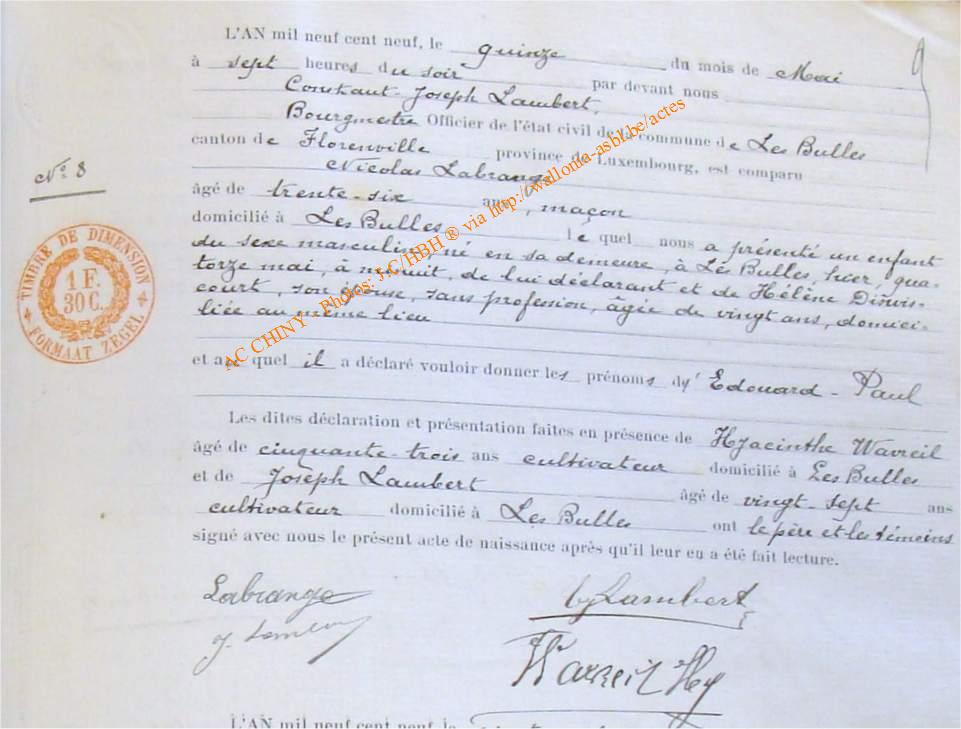 L'AN mil neuf cent neuf, le quinze du mois de Mai
à sept heures du soir par devant nous
Constant-Joseph Lambert,
Bourgmestre Officier de l'état civil de la commune de Les Bulles
canton de Florenville province de Luxembourg, est comparu
Nicolas Labrange
âgé de trente-six ans, maçon
domicilié à Les Bulles lequel nous a présenté un enfant
du sexe masculin né en sa demeure, à Les Bulles, hier, qua-
torze mai, à minuit, de lui déclarant et de Hélène Dinvis-
court, son épouse, sans profession, âgée de vingt ans, domici-
liée au même lieu
et au quel il a déclaré vouloir donner les prénoms d'Edouard-Paul
Les dites déclaration et présentation faites en présence de Hyacinthe Wavreil
âgé de cinquante-trois ans cultivateur domicilié à Les Bulles
et de Joseph Lambert âgé de vingt-sept ans
cultivateur domicilié à Les Bulles ont le père et les témoins
signé avec nous le présent acte de naissance après qu'il leur en a été fait lecture.
N° 8
TIMBRE DE DIMENSION
1 F.
30 C.
FORMAAT ZEGEL
AC CHINY - Photos: J.C/HBH ® via http://wallonia-asbl.be/actes
Labrange
Lambert
J. Lambert
Wavreil Hy
L'AN mil neuf cent neuf le